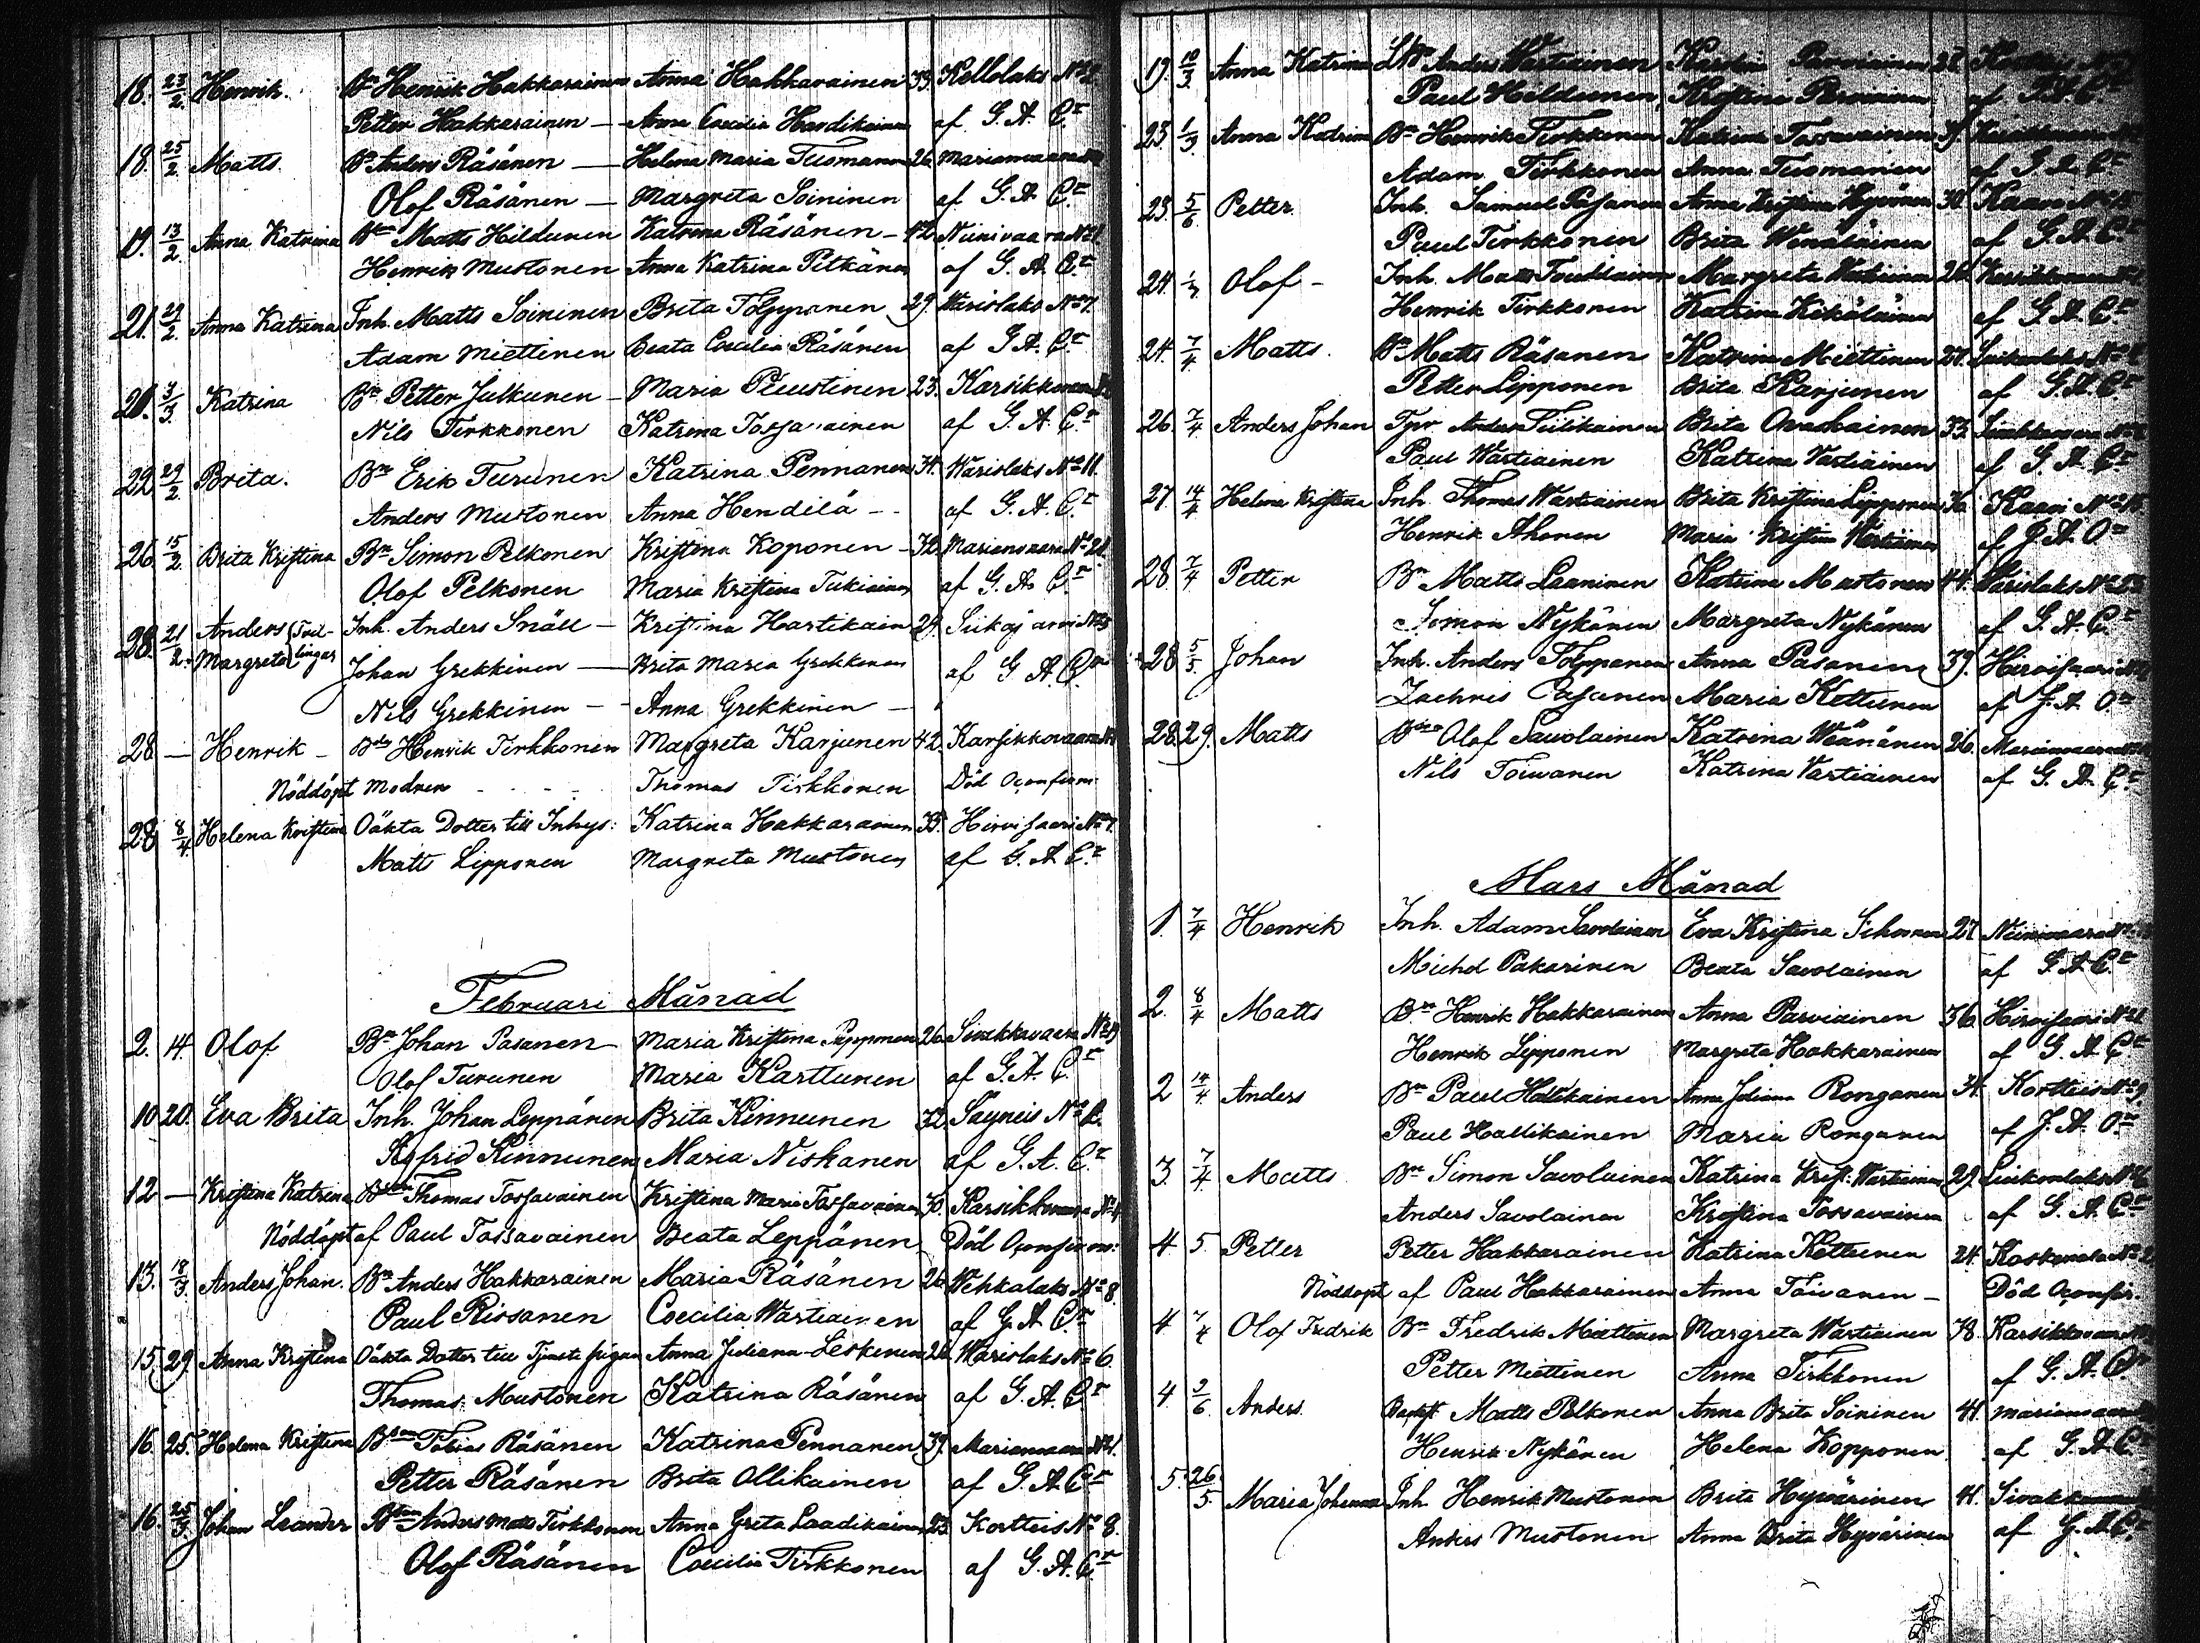 18. 23/2 Henrik. Bn Henrik Hakkarainen Anna Hakkarainen 33. Kellolaks No 2.
Petter Hakkarainen — Anna Caecilia Hardikainen af G. A. C.
18. 25/2 Matts. Bn Anders Räsänen — Helena Maria Tuomainen 26. Marianvaara
Olof Räsänen — Margreta Soininen af G. A. C.
19. 13/2 Anna Katrina Bn Matts Hildunen Katrina Räsänen — 42. Niinivaara No 21.
Henrik Mustonen Anna Katrina Pitkänen af G. A. C.
21. 29/2 Anna Katrina Inh. Matts Soininen Brita Tolppanen 29. Warislaks No 7.
Adam Miettinen Beata Caecilia Räsänen af G A. C.
21. 3/3 Katrina Bn Petter Julkunen — Maria Puustinen 23. Karsikkovaara
Nils Tirkkonen Katrina Tossavainen af G. A. C.
22. 29/2 Brita. Bn Erik Turunen Katrina Pennanen 34. Warislaks No 11.
Anders Mustonen Anna Hendilä — af G. A. C.
26. 15/2 Brita Kristina Bn Simon Pelkonen Kristina Koponen — 32. Marianvaara No 21.
Olof Pelkonen Maria Kristina Tukiainen af G. A. C.
28. 21/2 Anders Tvil- Inh. Anders Snäll — Kristina Hartikain 29. Siikajärvi
Margreta lingar Johan Grekkinen — Brita Maria Grekkinen af G A. C.
Nils Grekkinen — Anna Grekkinen —
28 — Henrik — Bn Henrik Tirkkonen Margreta Karjunen 42. Karsikkovaara
Nöddöpt Modren Thomas Tirkkonen Död Oconfirm:
28. 8/4. Helena Kristina Oäkta Dotter till Inhys: Katrina Hakkarainen 33. Hirvisaari No 7.
Matts Lipponen Margreta Mustonen af G. A. C.
Februari Månad
2. 14 Olof Bn Johan Pasanen — Maria Kristina 26. Sivakkavaara
Olof Turunen Maria Karttunen af G. A. C.
10 20. Eva Brita Inh. Johan Leppänen Brita Kinnunen 32. Säyneis No 2.
Sigfrid Kinnunen Maria Niskanen af G. A. C.
12 — Kristina Katrina Bn Thomas Tossavainen Kristina Maria Tossavainen 30. Karsikkovaara No 4
Nöddöpt af Paul Tossavainen Beata Leppänen Död Oconfirm:
13. 18/3. Anders Johan. Bn Anders Hakkarainen Maria Räsänen 26. Wehkalaks No 8.
Paul Rissanen Caecilia Wartiainen af G. A. C.
15. 29. Anna Kristina Oäkta Dotter till Tjenste pigan Anna Juliana Leskinen 26. Warislaks No 6.
Thomas Mustonen Katrina Räsänen af G. A. C.
16. 25. Helena Kristina Bn Tobias Räsänen Katrina Pennanen 39. Marianvaara No 21.
Petter Räsänen Brita Ollikainen af G. A. C.
16. 25/3 Johan Leander Bn Anders Matts Tirkkonen Anna Greta Laadikainen 23. Kortteis No 8.
Olof Räsänen Caecilia Tirkkonen af G. A. C.
19. 10/3 Anna Katrina Anders Wartiainen Parviainen
Paul Hildunen Kristina Parviainen af G. A. C.
23. 1/3 Anna Katrina Bn Henrik Tirkkonen Katrina Tossavainen
Adam Tirkkonen Anna Tuomainen af G. A. C.
23. 5/6 Petter. Inh. Samuel Pasanen Anna Kristina Hyvönen 30. Kaavi
Paul Tirkkonen Brita Wenäläinen af G. A. C.
24. Olof — Inh. Matts Margreta 26.
Henrik Tirkkonen Katrina af G. A. C.
24. 7/4 Matts. Bn Matts Räsänen Katrina Miettinen 27.
Petter Lipponen Brita Karjunen af G. A. C.
26. 7/4 Anders Johan Anders Brita 33.
Paul Wartiainen Katrina Vartiainen af G. A. C.
27. 14/4 Helena Kristina Inh. Thomas Wartiainen Brita Kristina Lipponen Kaavi
Henrik Ahonen Maria Kristina Wartiainen af J. A. O.
28 7/4 Petter Bn Matts Laaninen Katrina Mustonen 44. Warislaks
Simon Nykänen Margreta Nykänen af G. A. C.
28 5/5. Johan Inh. Anders Tolppanen Anna Pasanen 39. Hirvisaari
Zachris Pasanen Maria Kettunen af J. A. O.
28. 29. Matts Bn Olof Savolainen Katrina Wäänänen 26. Marianvaara
Nils Toivanen Katrina Vartiainen af G. A. C.
Mars Månad
1. 7/4 Henrik Inh. Adam Savolainen Eva Kristina Sihvonen 27 Niinivaara
Michel Pakarinen Beata Savolainen af G. A. C.
2. 8/4 Matts Bn Henrik Hakkarainen Anna Parviainen 36. Hirvisaari No 21
Henrik Lipponen Margreta Hakkarainen af G. A. C.
2 14/4. Anders Bn Paul Hallikainen Anna Juliana Ronganen 34. Kortteis No 9.
Paul Hallikainen Maria Ronganen af J. A. O.
3. 7/4 Matts Bn Simon Savolainen Katrina Krist: Wartiainen 29. Siikonlaks
Anders Savolainen Kristina Tossavainen af G. A. C.
4 5. Petter Petter Hakkarainen Katrina Kettunen 24. Koskenala No 2
Nöddöpt af Paul Hakkarainen Anna Toivanen — Död Oconfir.
4 7/4 Olof Fredrik Bn Fredrik Miettinen Margreta Wartiainen 38. Karsikkovaara
Petter Miettinen Anna Tirkkonen af G. A. C.
4 3/6. Anders. Matts Pelkonen Anna Brita Soininen 41. Marianvaara
Henrik Nykänen Helena Kopponen af G. A. C.
5. 26/5. Maria Johanna Inh. Henrik Mustonen Brita Hyvärinen 41. Sivakkavaara
Anders Mustonen Anna Brita Hyvärinen af G. A. C.